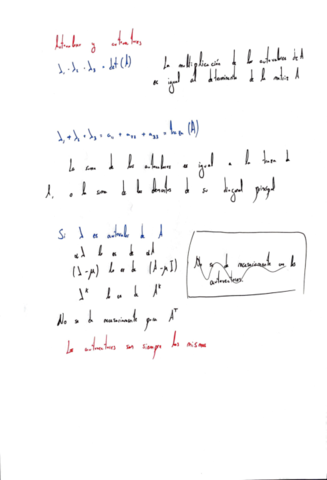 Autovalores y autovectores
λ₁ · λ₂ · λ₃ = det (A)
La multiplicación de los autovalores de A
es igual al determinante de la matriz A
λ₁ + λ₂ + λ₃ = a₁₁ + a₂₂ + a₃₃ = traza (A)
La suma de los autovalores es igual a la traza de
A, o la suma de los elementos de su diagonal principal
Si λ es autovalor de A
αλ lo es de αA
(λ-μ) lo es de (A-μI)
λᵏ lo es de Aᵏ
No se da necesariamente para Aᵀ
No se da necesariamente con los
autovectores
Los autovectores son siempre los mismos